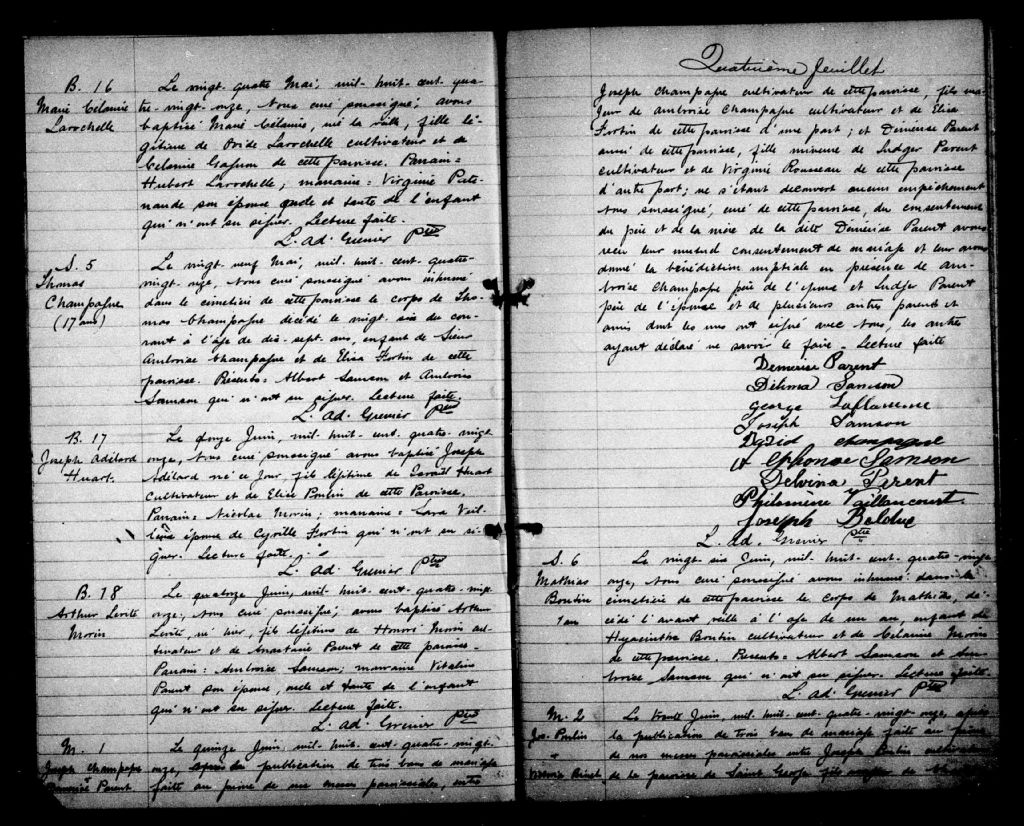 B. 16
Marie Célanire
Larochelle
Le vingt-quatre Mai, mil-huit-cent-qua-
tre-vingt-onze, Nous curé soussigné, avons
baptisé Marie Célanire, née la veille, fille lé-
gitime de Ovide Larochelle cultivateur et de
Célanire Gagnon de cette paroisse. Parrain =
Hubert Larochelle; marraine = Virginie
son épouse oncle et tante de l'enfant
qui n'ont su signer. Lecture faite.
L. Ad. Grenier Ptre
S. 5
Thomas
Champagne
(17 ans)
Le vingt-neuf Mai, mil-huit-cent-quatre-
vingt-onze, Nous curé soussigné avons inhumé
dans le cimetière de cette paroisse le corps de Tho-
mas Champagne décédé le vingt-six du cou-
rant à l'âge de dix-sept ans, enfant de Sieur
Ambroise Champagne et de Eliza Fortin de cette
paroisse. Présents: Albert Samson et Ambroise
Samson qui n'ont su signer. Lecture faite.
L. Ad. Grenier Ptre
B. 17
Joseph Adélard
Huart.
Le douze Juin, mil-huit-cent-quatre-vingt
onze, Nous curé soussigné avons baptisé Joseph
Adélard né ce jour fils légitime de Israël Huart
Cultivateur et de Elise Poulin de cette Paroisse.
Parrain = Nicolas Morin; marraine = Lara Veil-
leux épouse de Cyrille Fortin qui n'ont su si-
gner. Lecture faite.
L. Ad. Grenier Ptre
B. 18
Arthur Lévite
Morin
Le quatorze Juin, mil-huit-cent-quatre-vingt
onze, Nous curé soussigné, avons baptisé Arthur
Lévite, né hier, fils légitime de Honoré Morin cul-
tivateur et de Anastasie Parent de cette paroisse.
Parrain = Ambroise Samson; marraine Vitaline
Parent son épouse, oncle et tante de l'enfant
qui n'ont su signer. Lecture faite.
L. Ad. Grenier Ptre
M. 1
Joseph Champagne
&
Démérise Parent
Le quinze Juin, mil-huit-cent-quatre-vingt-
onze, après la publication de trois bans de mariage
faite au prône de nos messes paroissiales, entre
Quatrième feuillet
Joseph Champagne cultivateur de cette paroisse, fils ma-
jeur de Ambroise Champagne cultivateur et de Eliza
Fortin de cette paroisse d'une part; et Démérise Parent
aussi de cette paroisse, fille mineure de Ludger Parent
cultivateur et de Virginie Rousseau de cette paroisse
d'autre part; ne s'étant découvert aucun empêchement
Nous soussigné, curé de cette paroisse, du consentement
du père et de la mère de la dite Démérise Parent avons
reçu leur mutuel consentement de mariage et leur avons
donné la bénédiction nuptiale en présence de Am-
broise Champagne père de l'époux et Ludger Parent
père de l'épouse et de plusieurs autres parents et
amis dont les uns ont signé avec Nous, les autres
ayant déclaré ne savoir le faire. Lecture faite
Démérise Parent
Délima Samson
George Laflamme
Joseph Samson
champagne
Alphonse Samson
Delvina Perent
Philomène Vaillancourt
Joseph Bolduc
L. Ad. Grenier Ptre
S. 6
Mathias
Boutin
1 an
Le vingt-six Juin, mil-huit-cent-quatre-vingt
onze, Nous curé soussigné avons inhumé dans le
cimetière de cette paroisse le corps de Mathias, dé-
cédé l'avant veille à l'âge de un an, enfant de
Hyacinthe Boutin cultivateur et de Célanire Morin
de cette paroisse. Présents = Albert Samson et Am-
broise Samson qui n'ont su signer. Lecture faite
L. Ad. Grenier Ptre
M. 2
Jos. Poulin
&
Le trente Juin, mil-huit-cent-quatre-vingt-onze, après
la publication de trois bans de mariage faite au prône
de nos messes paroissiales entre Joseph Poulin cultivateur
de la paroisse de Saint George fils de